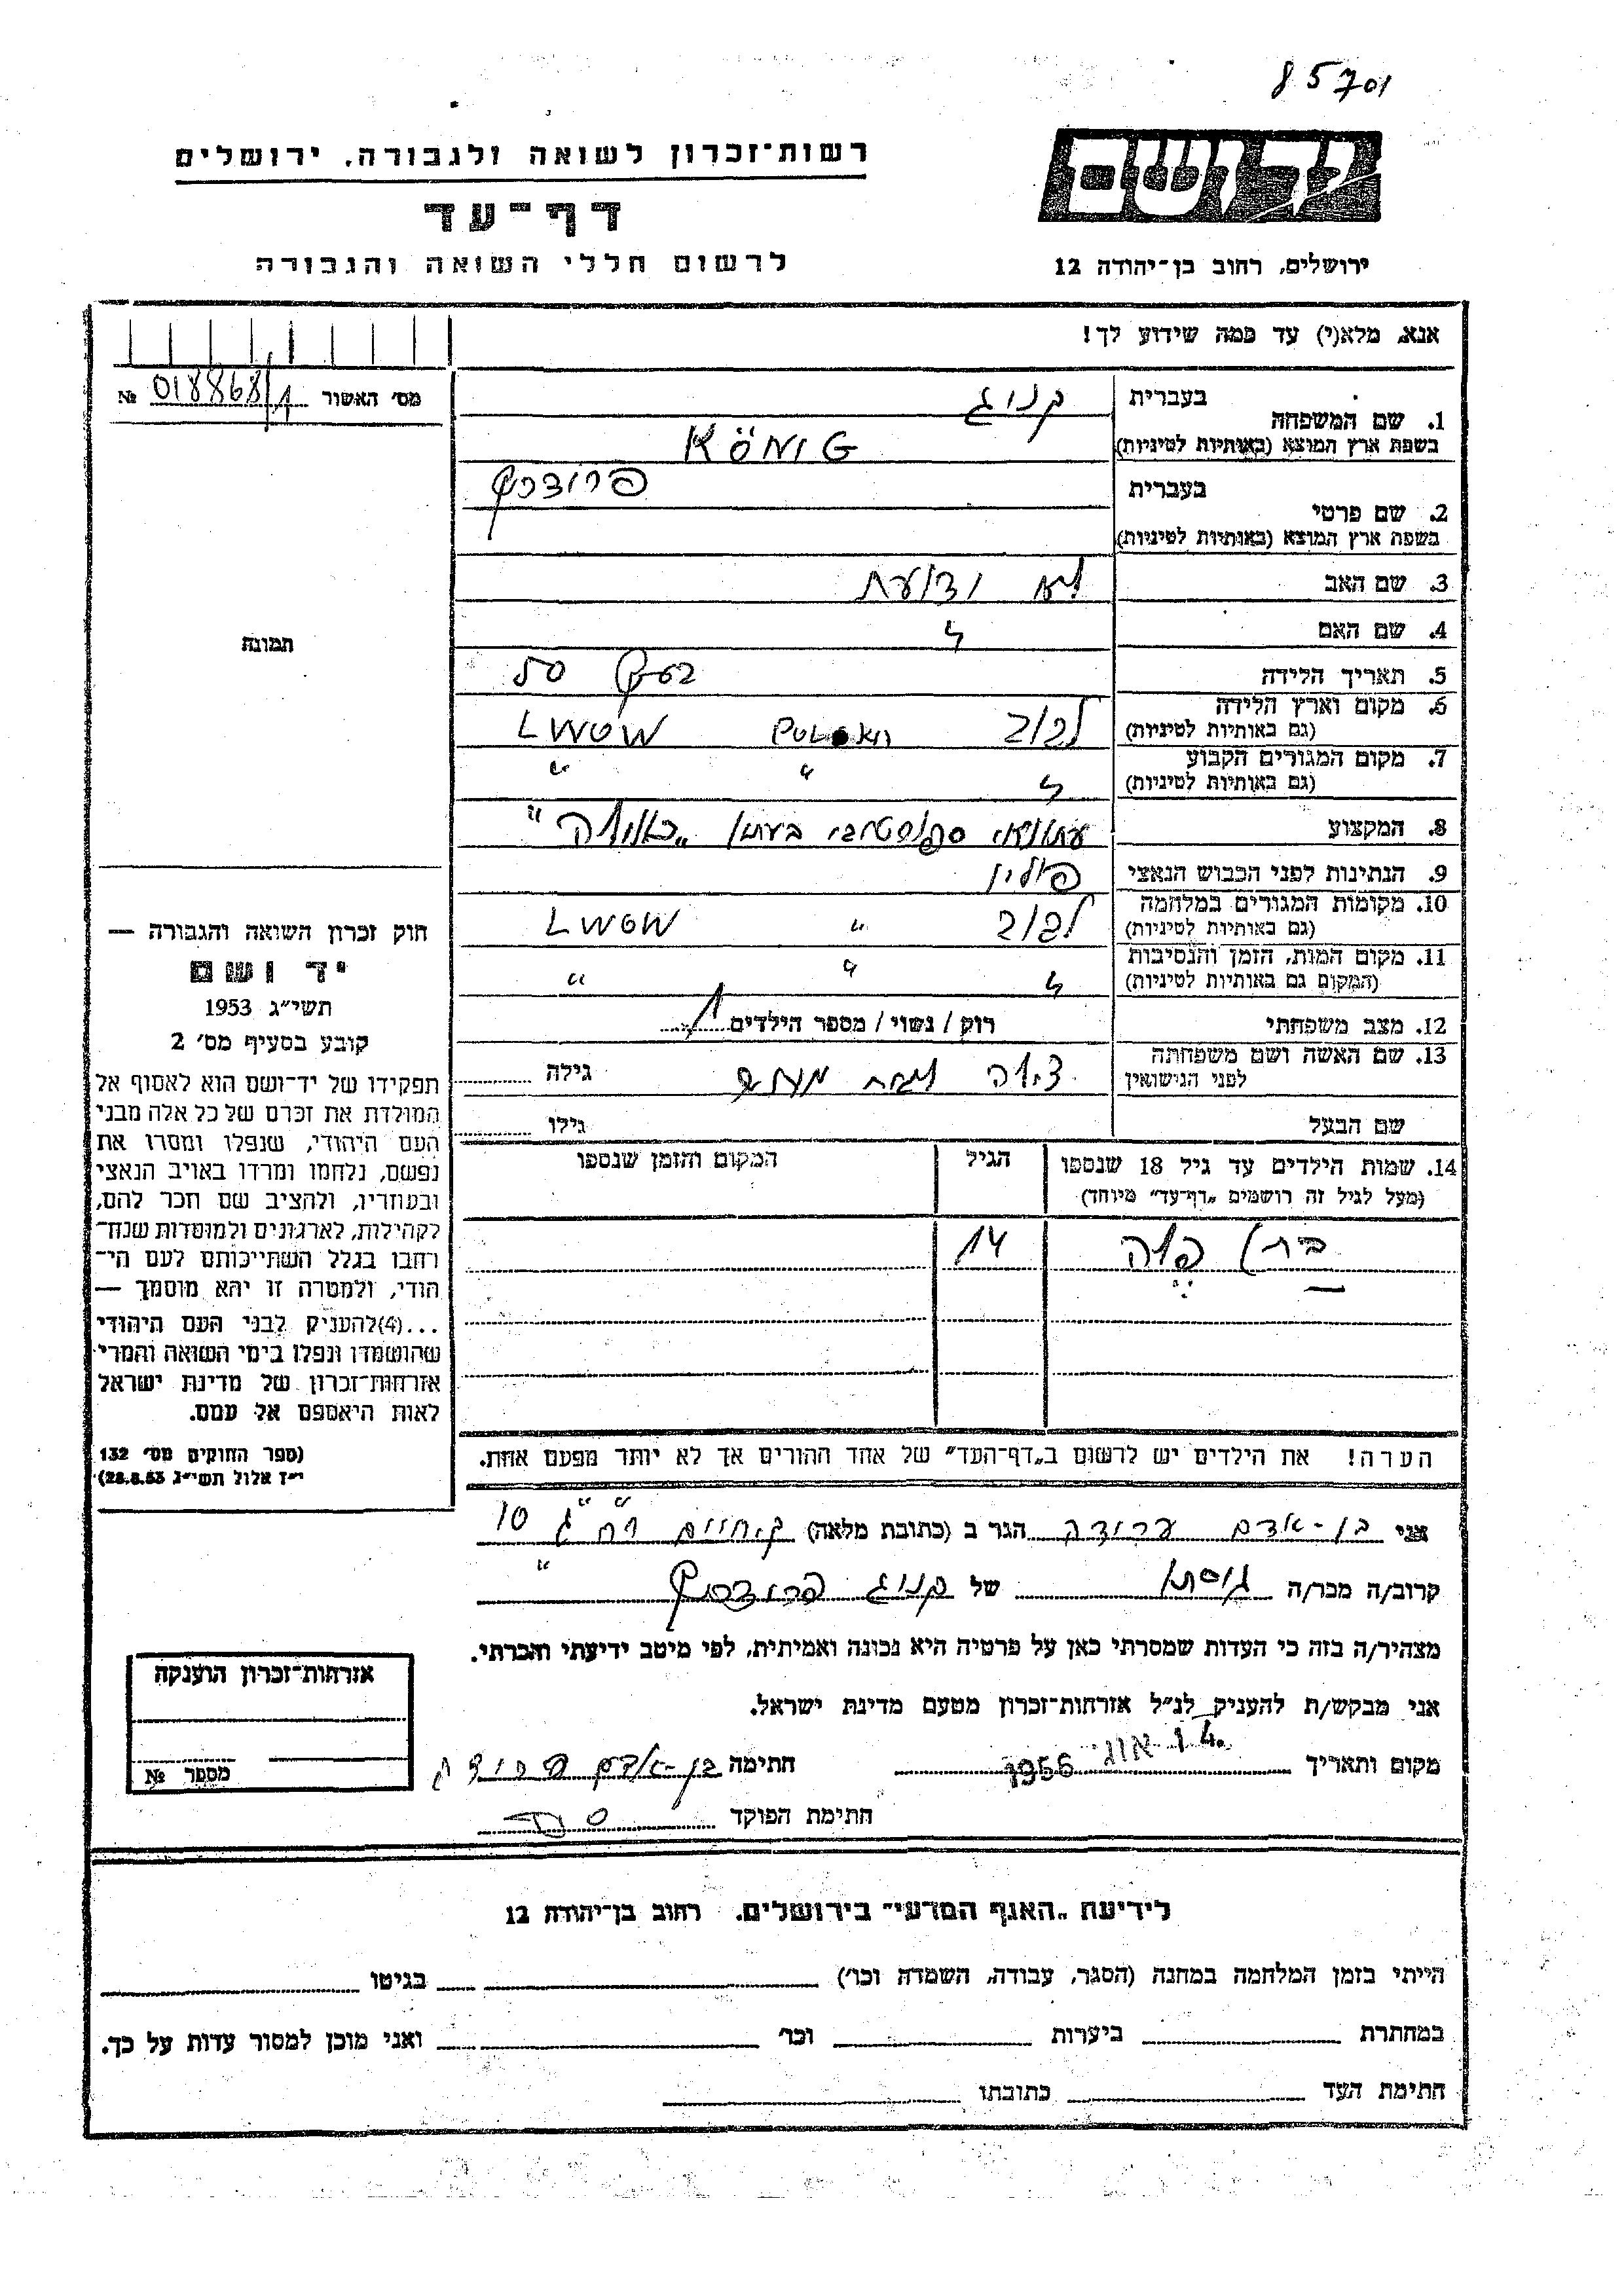 85701
רשות־זכרון לשואה ולגבורה, ירושלים
יד ושם
דף־עד
לרשום חללי השואה והגבורה
ירושלים, רחוב בן־יהודה 12
אנא, מלא(י) עד כמה שידוע לך!
מס׳ האשור 018868/1 №
1. שם המשפחה
בעברית קניג
בשפת ארץ המוצא (באותיות לטיניות) KÖNIG
2. שם פרטי
בעברית
בשפת ארץ המוצא (באותיות לטיניות)
3. שם האב לא יודעת
4. שם האם "
5. תאריך הלידה בערך 50
6. מקום וארץ הלידה
(גם באותיות לטיניות) לבוב LWOW
7. מקום המגורים הקבוע
(גם באותיות לטיניות) " " "
8. המקצוע בעתון
9. הנתינות לפני הכבוש הנאצי פולין
10. מקומות המגורים במלחמה
(גם באותיות לטיניות) לבוב " LWOW
11. מקום המות, הזמן והנסיבות
(המקום גם באותיות לטיניות) " " "
12. מצב משפחתי רוק / נשוי / מספר הילדים 1
13. שם האשה ושם משפחתה
לפני הנישואין גילה
שם הבעל גילו
14. שמות הילדים עד גיל 18 שנספו
(מעל לגיל זה רושמים „דף־עד״ מיוחד)
הגיל
המקום והזמן שנספו
14
הערה! את הילדים יש לרשום ב„דף־העד״ של אחד ההורים אך לא יותר מפעם אחת.
תמונה
חוק זכרון השואה והגבורה —
יד ושם
תשי״ג 1953
קובע בסעיף מס׳ 2
תפקידו של יד־ושם הוא לאסוף אל
המולדת את זכרם של כל אלה מבני
העם היהודי, שנפלו ומסרו את
נפשם, נלחמו ומרדו באויב הנאצי
ובעוזריו, ולהציב שם וזכר להם,
לקהילות, לארגונים ולמוסדות שנח־
רבו בגלל השתייכותם לעם הי־
הודי, ולמטרה זו יהא מוסמך —
...(4) להעניק לבני העם היהודי
שהושמדו ונפלו בימי השואה והמרי
אזרחות־זכרון של מדינת ישראל
לאות היאספם אל עמם.
(ספר החוקים מס׳ 132
י״ז אלול תשי״ג 28.8.53)
אני בן-אדם הגר ב (כתובת מלאה) 10
קרוב/ה מכר/ה גיסתו של קניג
מצהיר/ה בזה כי העדות שמסרתי כאן על פרטיה היא נכונה ואמיתית, לפי מיטב ידיעתי והכרתי.
אני מבקש/ת להעניק לנ״ל אזרחות־זכרון מטעם מדינת ישראל.
מקום ותאריך אוג 1956 חתימה בן-אדם
חתימת הפוקד
אזרחות־זכרון הוענקה
מספר №
לידיעת „האגף המדעי״ בירושלים, רחוב בן־יהודה 12
הייתי בזמן המלחמה במחנה (הסגר, עבודה, השמדה וכו׳) בגיטו
במחתרת ביערות וכו׳ ואני מוכן למסור עדות על כך.
חתימת העד כתובתו